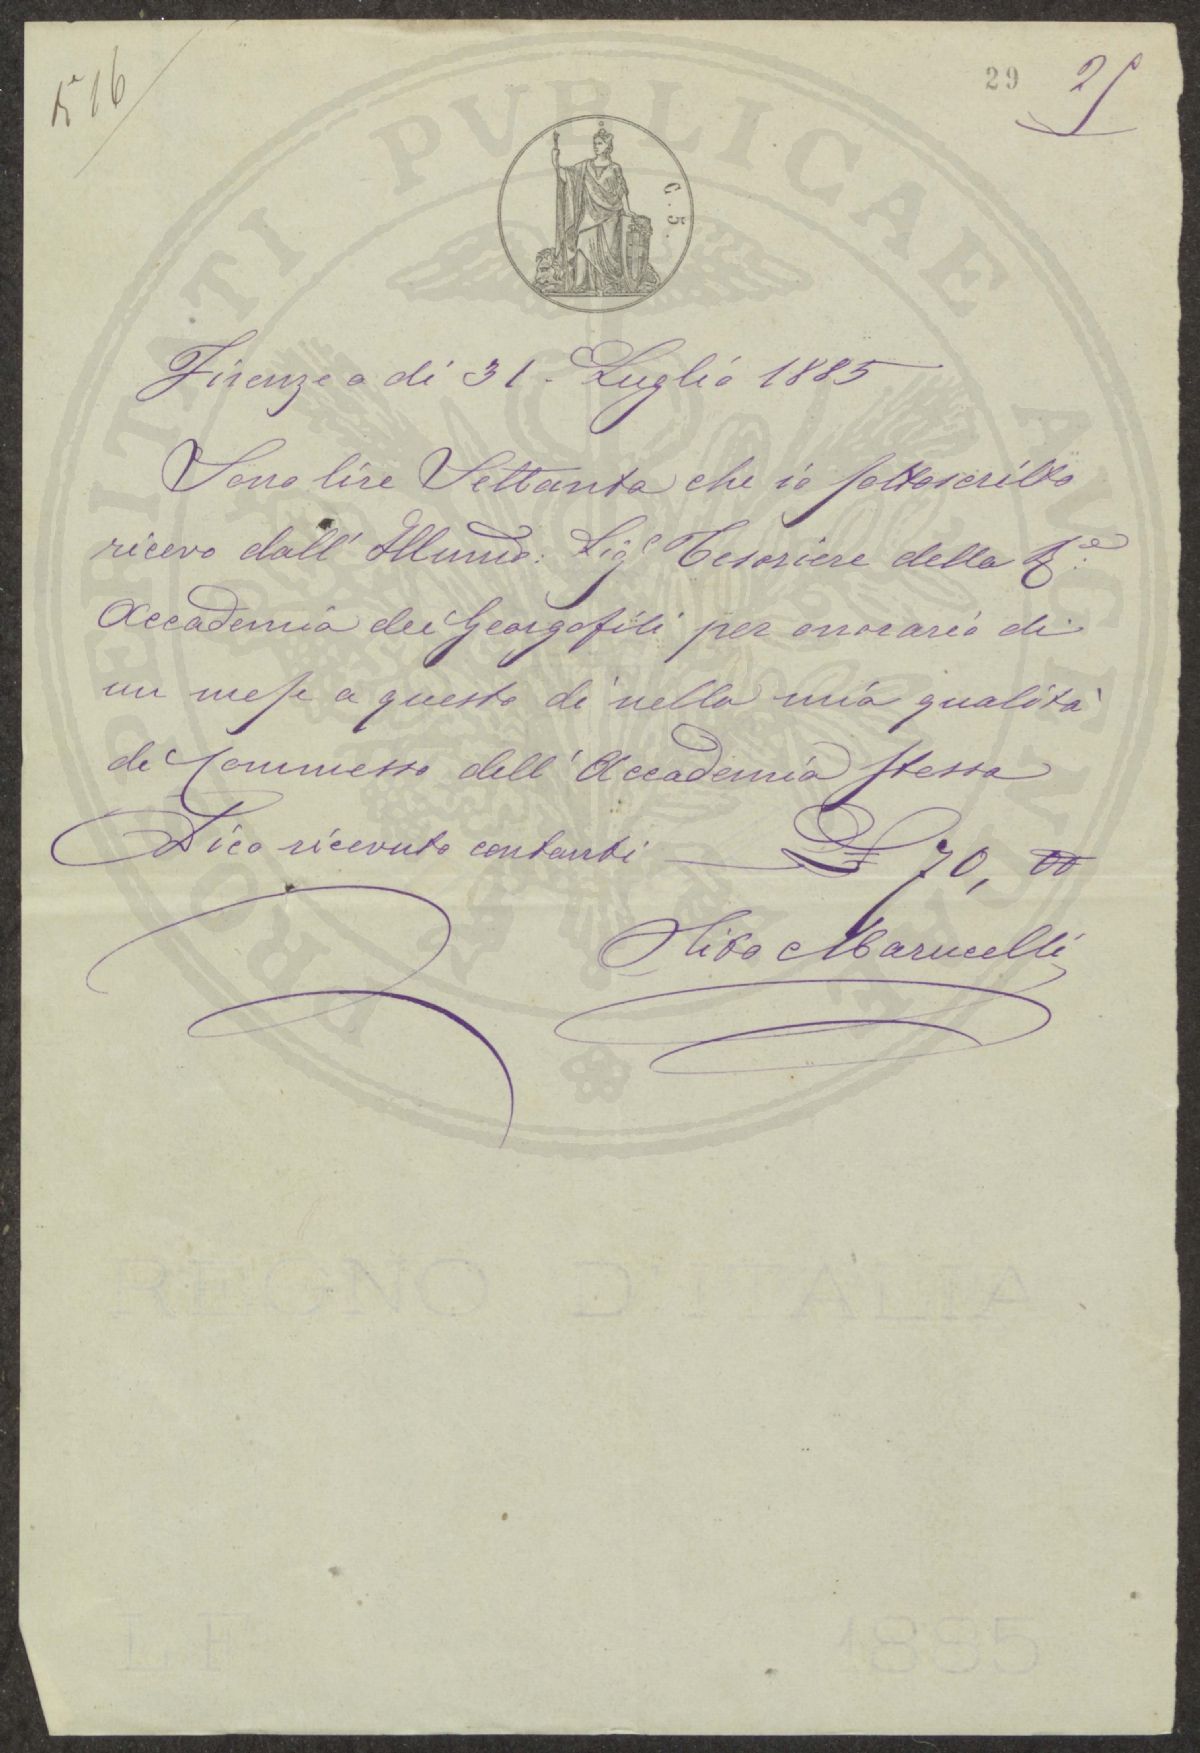 16
29 25
C. 5.
Firenze a di 31. Luglio 1885
Sono lire Settanta che io sottoscritto
ricevo dall' Illumo: Sigr Tesoriere della Re:
Accademia dei Georgofili per onorario di
un mese a questo dì nella mia qualità
di Commesso dell' Accademia stessa
Dico ricevuto contanti — £ 70, 00
Marucelli
PROSPERITATI PVBLICAE AVGENDAE
REGNO D'ITALIA
1885